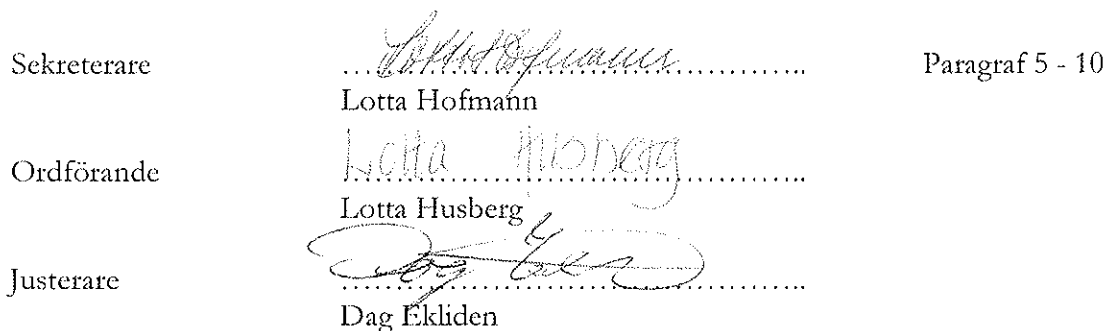 Sekreterare Lotta Hofmann Paragraf 5 - 10
Lotta Hofmann
Ordförande Lotta Husberg
Lotta Husberg
Justerare Dag Ekliden
Dag Ekliden